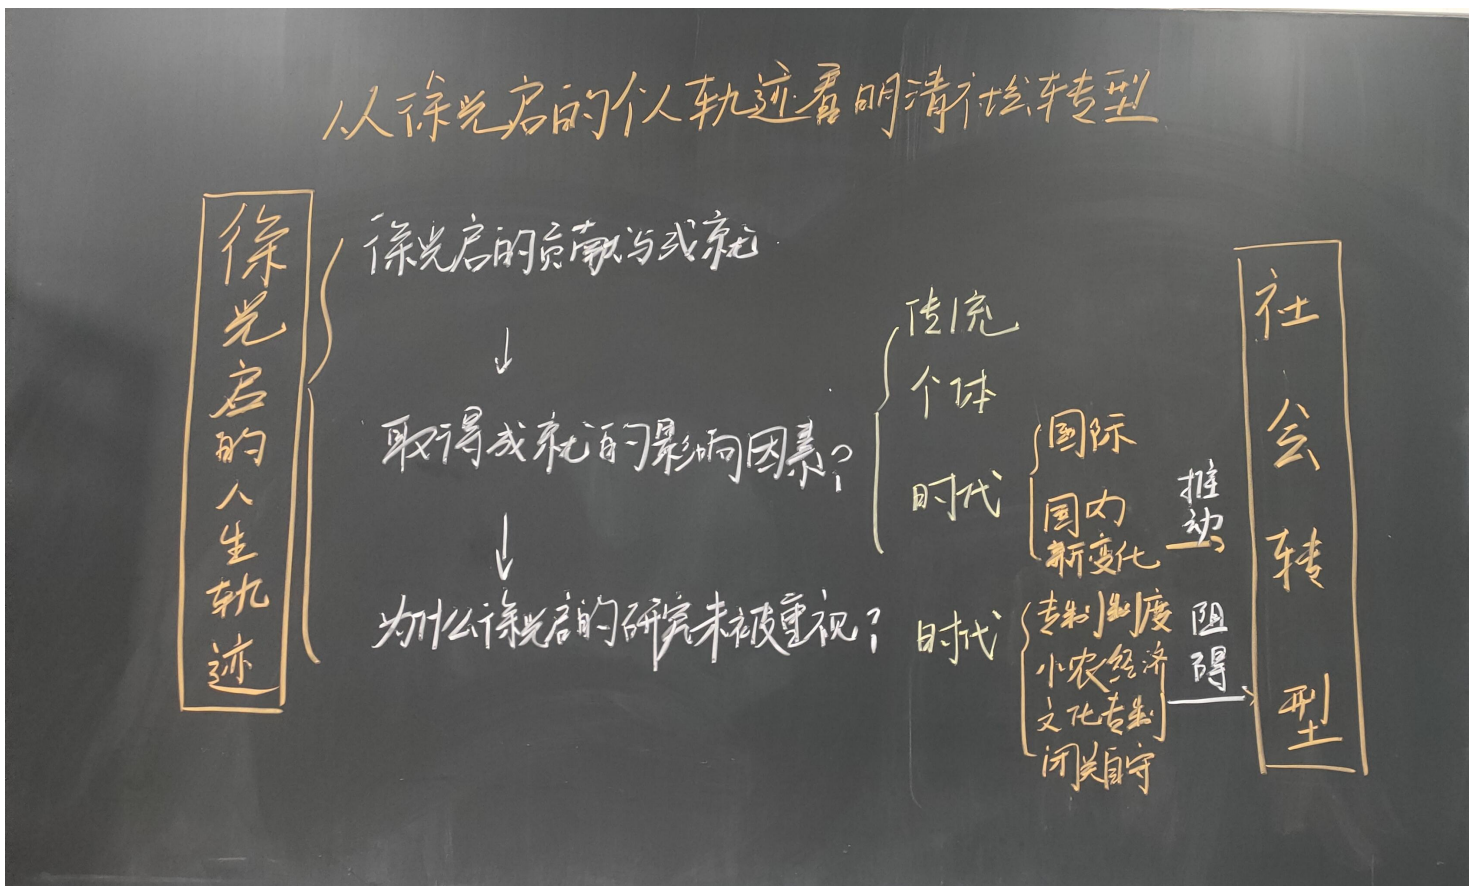 从徐光启的个人轨迹看明清社会转型
徐光启的人生轨迹
徐光启的贡献与成就
↓
取得成就的影响因素?
↓
为什么徐光启的研究未被重视?
传统
个体
时代
国际
国内
新变化
推动
时代
专制制度
小农经济
文化专制
闭关自守
阻碍
社会转型